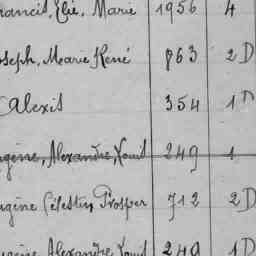 rancis, Élie, Marie 1956 4
oseph, Marie René 863 2D
Alexis 354 1D
ugène, Alexandre, Louis 249 1
ugène Célestin Prosper 712 2D
ugène Alexandre Louis 249 1D